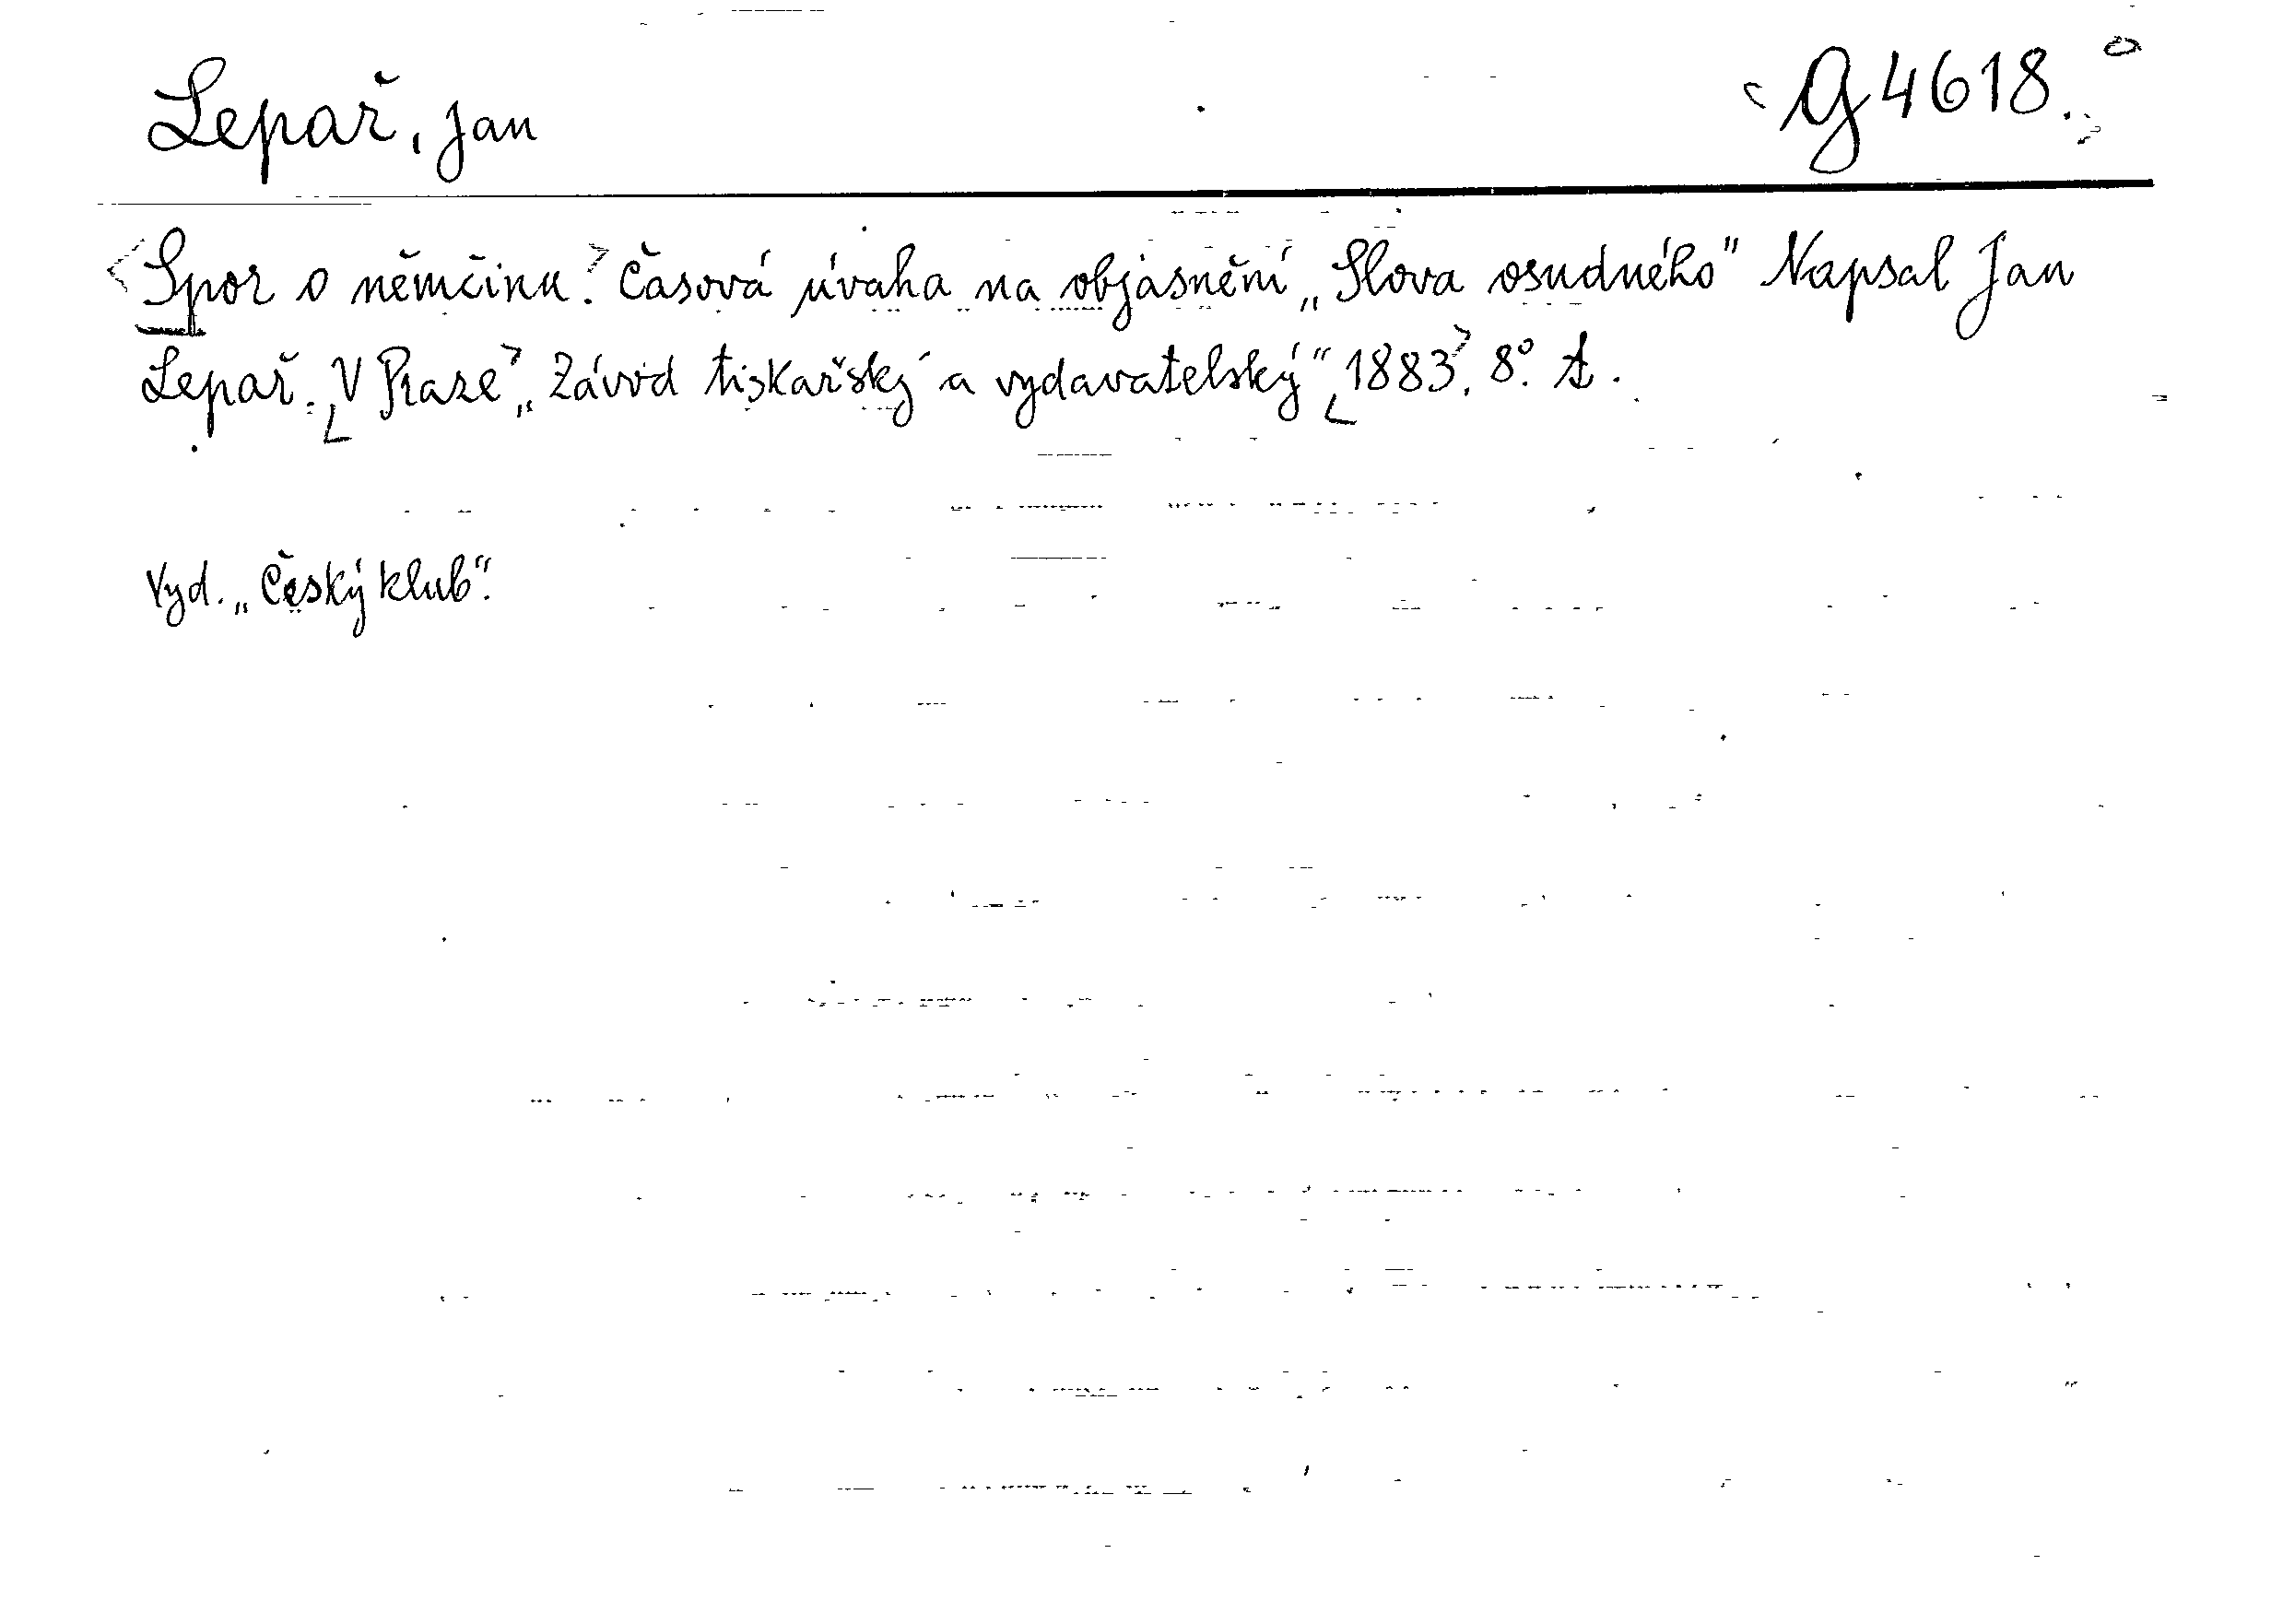 Lepař, Jan
G 4618.
<Spor o němčinu.> Časová úvaha na objasnění „Slova osudného" Napsal Jan
Lepař. <V Praze>, „Závod tiskařský a vydavatelský", <1883>. 8°.
Vyd. „Český klub".